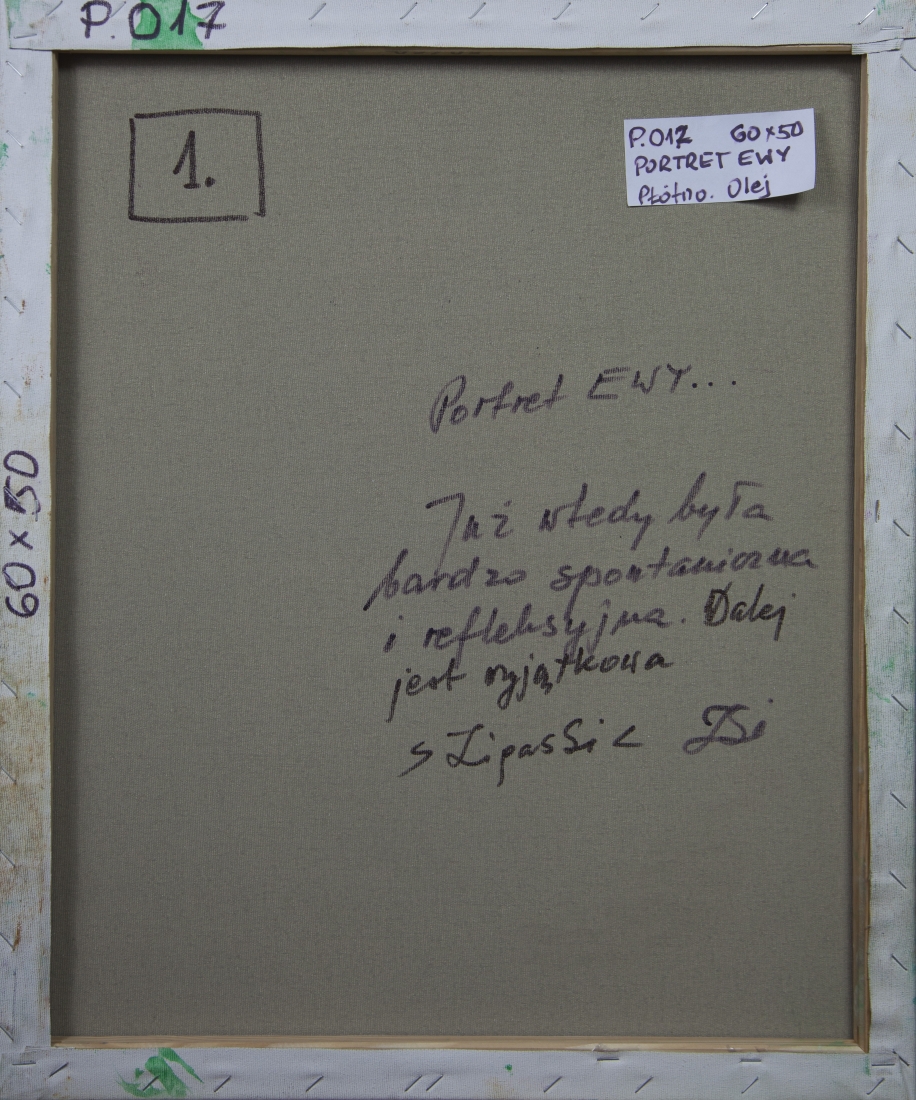 P.017
1.
P.017 60x50
PORTRET EWY
Płótno. Olej
Portret EWY...
Już wtedy była
bardzo spontaniczna
i refleksyjna. Dalej
jest wyjątkowa
60 x 50